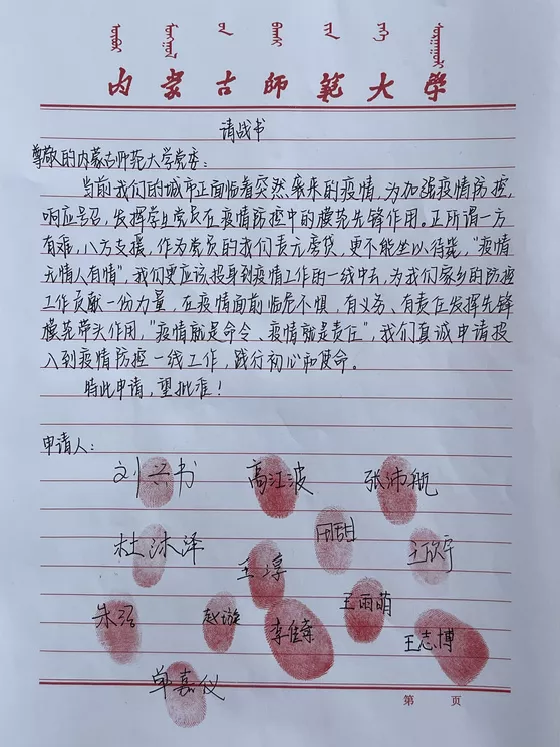 内蒙古师范大学
请战书
尊敬的内蒙古师范大学党委:
当前我们的城市正面临着突然袭来的疫情,为加强疫情防控,
响应号召,发挥学生党员在疫情防控中的模范先锋作用。正所谓一方
有难,八方支援,作为党员的我们责无旁贷,更不能坐以待毙,"疫情
无情人有情",我们更应该投身到疫情工作的一线中去,为我们家乡的防控
工作贡献一份力量,在疫情面前临危不惧,有义务、有责任发挥先锋
模范带头作用,"疫情就是命令、疫情就是责任",我们真诚申请投
入到疫情防控一线工作,践行初心和使命。
特此申请,望批准!
申请人:
刘兴书 高江波 张沛航
杜沐泽 王婷 田甜 王欣宇
朱强 赵璇 李佳奇 王雨萌 王志博
单嘉仪
第 页